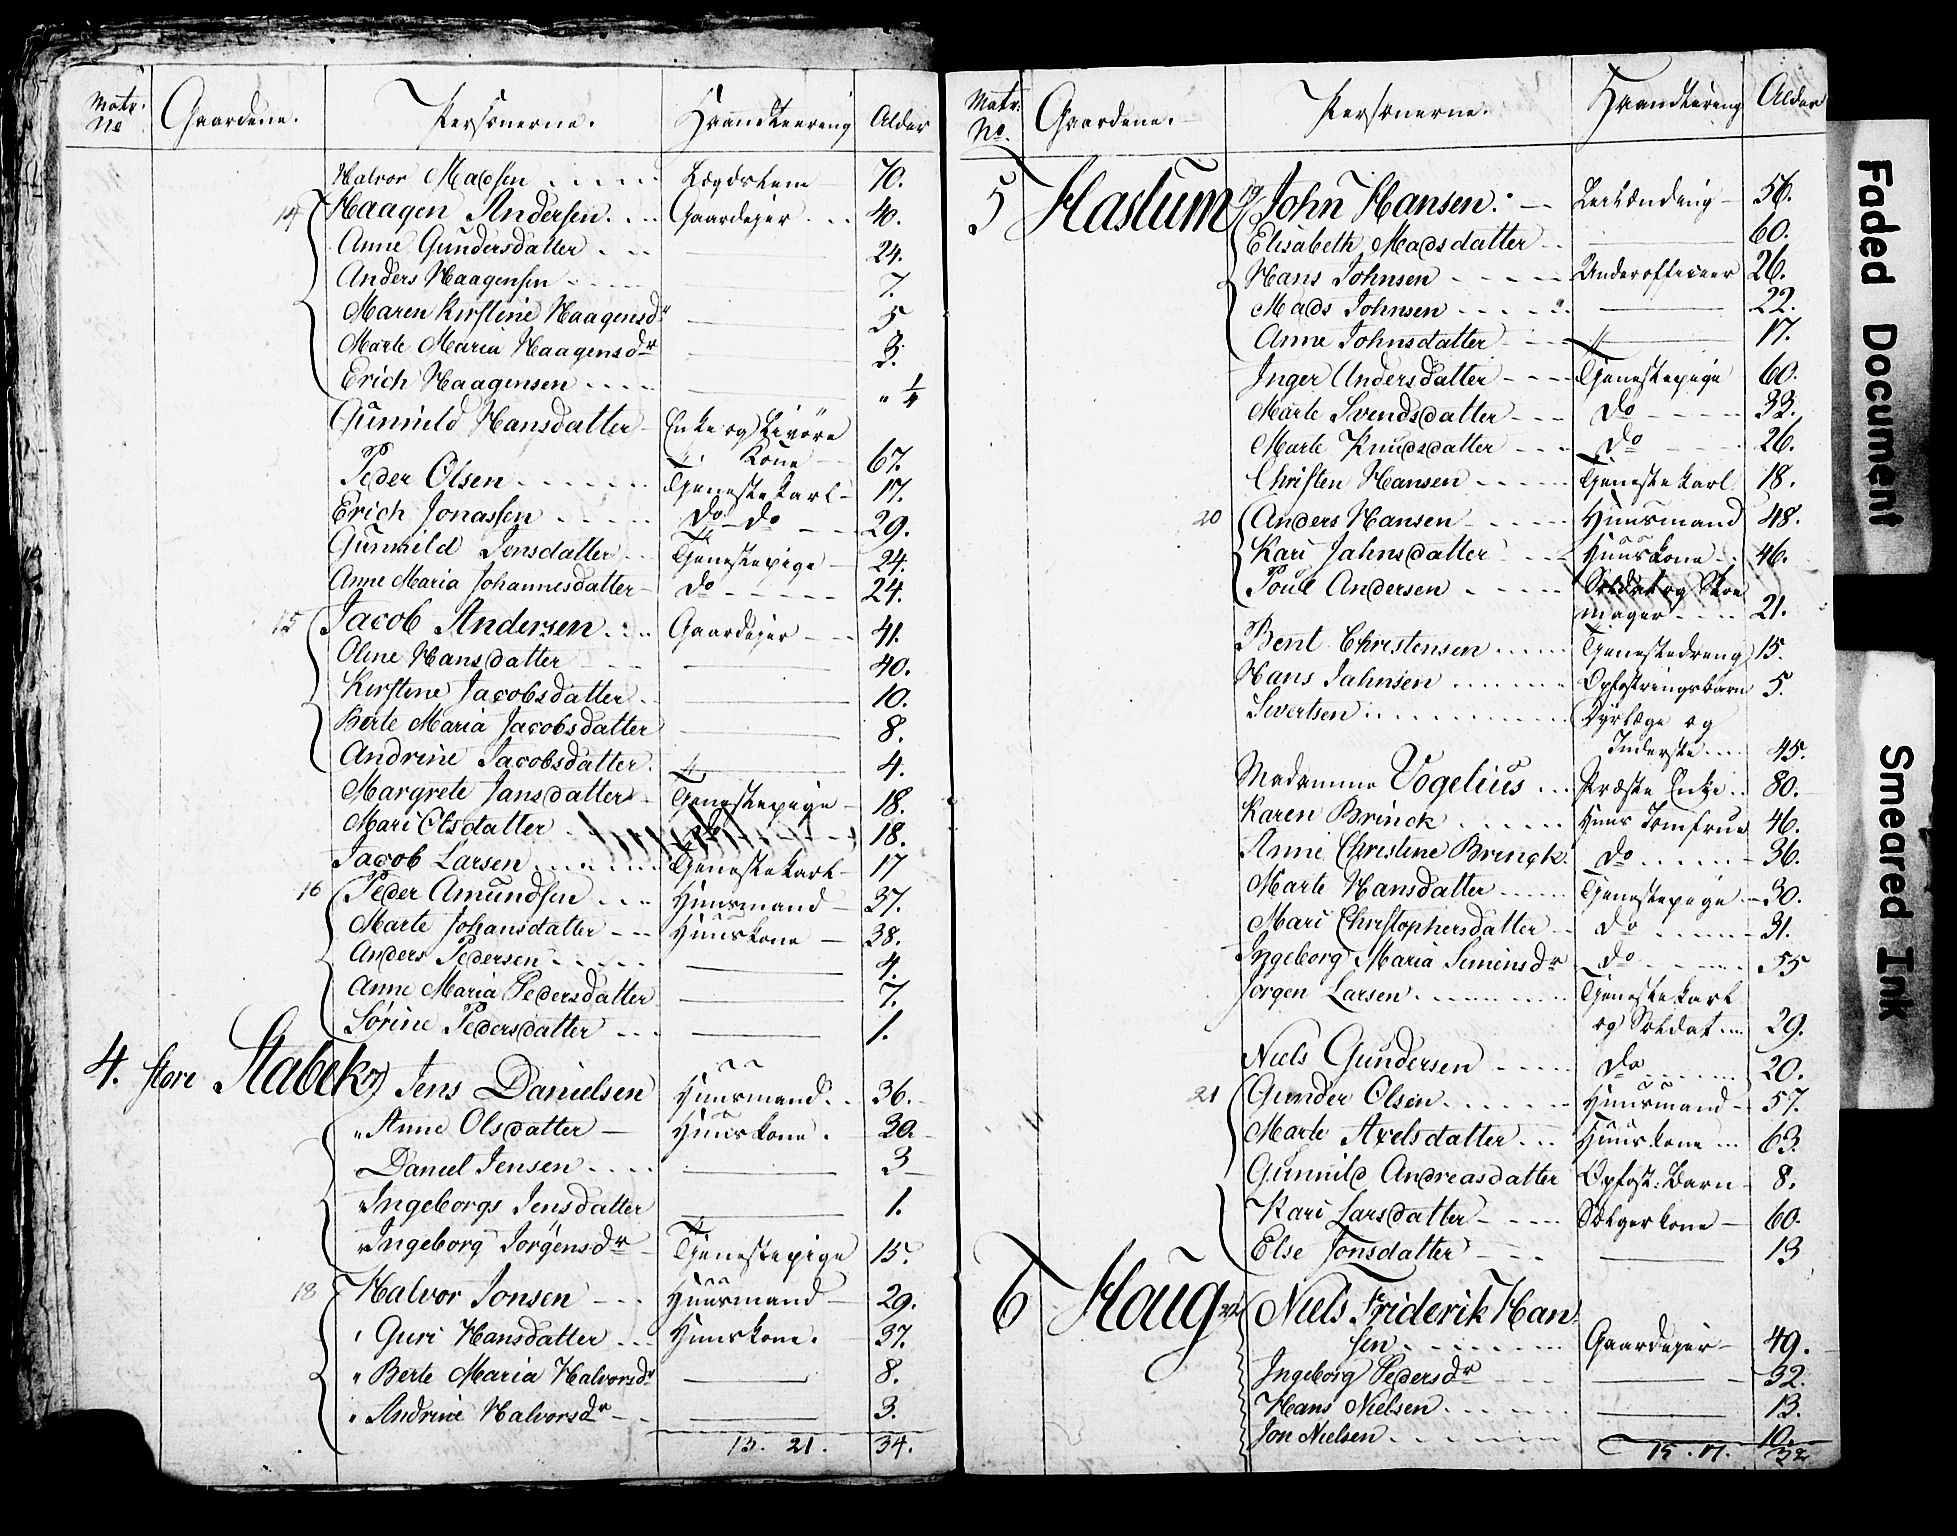 Matr. No Gaardene. Personerne. Haandteering Alder
Halvor Madssen Lægdslem 70.
14 Haagen Andersen Gaardejer 40.
Anne Gundersdatter 24.
Anders Haagensen 7.
Maren Kirstine Haagensdr 5
Marte Maria Haagensdr 3.
Erich Haagensen " 1/4
Gunnild Hansdatter Enke og Livöre
Kone 67.
Peder Olsen Tjenestekarl 17.
Erich Jonassen do do 29.
Gunnild Jensdatter Tjenestepige 24.
Anne Maria Johannesdatter do 24.
15 Jacob Andersen Gaardejer 41.
Oline Hansdatter 40.
Kirstine Jacobsdatter 10.
Berte Maria Jacobsdatter 8.
Andrine Jacobsdatter 4.
Margrete Jansdatter Tjenestepige 18.
Mari Olsdatter 18.
Jacob Larsen Tjenestekarl 17
16 Peder Amundsen Huusmand 37.
Marte Johansdatter Huuskone 38.
Anders Pedersen 4.
Anne Maria Pedersdatter 7.
Sørine Pedersdatter 1.
4. store Stabek 17 Jens Danielsen Huusmand 36.
" Anne Olsdatter Huuskone 30.
Daniel Jensen 3
" Ingeborgs Jensdatter 1.
" Ingeborg Jørgensdr Tjenestepige 15.
18 Halvor Jonsen Huusmand 29.
" Guri Hansdatter Huuskone. 37.
" Berte Maria Halvorsdr 8.
" Andrine Halvorsdr 3.
13. 21. 34.
Matr. No. Gaardene. Personerne. Haandtering Alder
5 Haslum 19 John Hansen Leilænding 56.
Elisabeth Madsdatter 60.
Hans Johnsen Underofficeer 26.
Mads Johnsen 22.
Anne Johnsdatter 17.
Inger Andersdatter Tjenestepige 60.
Marte Svendsdatter do 33.
Marte Knudsdatter do 26.
Christen Hansen Tjenestekarl 18.
20 Anders Hansen Huusmand 48.
Kari Jahnsdatter Huuskone 46.
Poul Andersen Soldat og Skoe
mager 21.
Bent Christensen Tjenestedreng 15.
Hans Jahnsen Opfostringsbarn 5.
Sivertsen Dyrlæge og
Inderste 45.
Madamme Vogelius Præste Enke 80.
Karen Brinck Huus Jomfrue 46.
Anne Christine Brinck do 36.
Marte Hansdatter Tjenestepige 30.
Mari Christophersdatter do 31.
Ingeborg Maria Simensdr do 55
Jørgen Larsen Tjenestekarl
og Soldat 29.
Niels Gundersen do 20.
21 Gunder Olsen Huusmand 57.
Marte Axelsdatter Huuskone 63.
Gunnild Andreasdatter Opfost: Barn 8.
Kari Larsdatter Sælgerkone 60.
Else Jonsdatter 13
6 Haug 22 Niels Friderik Han
sen Gaardejer 49.
Ingeborg Pedersdr 32.
Hans Nielsen 13.
Jon Nielsen 10.
15. 17. 32
Faded Document
Smeared Ink